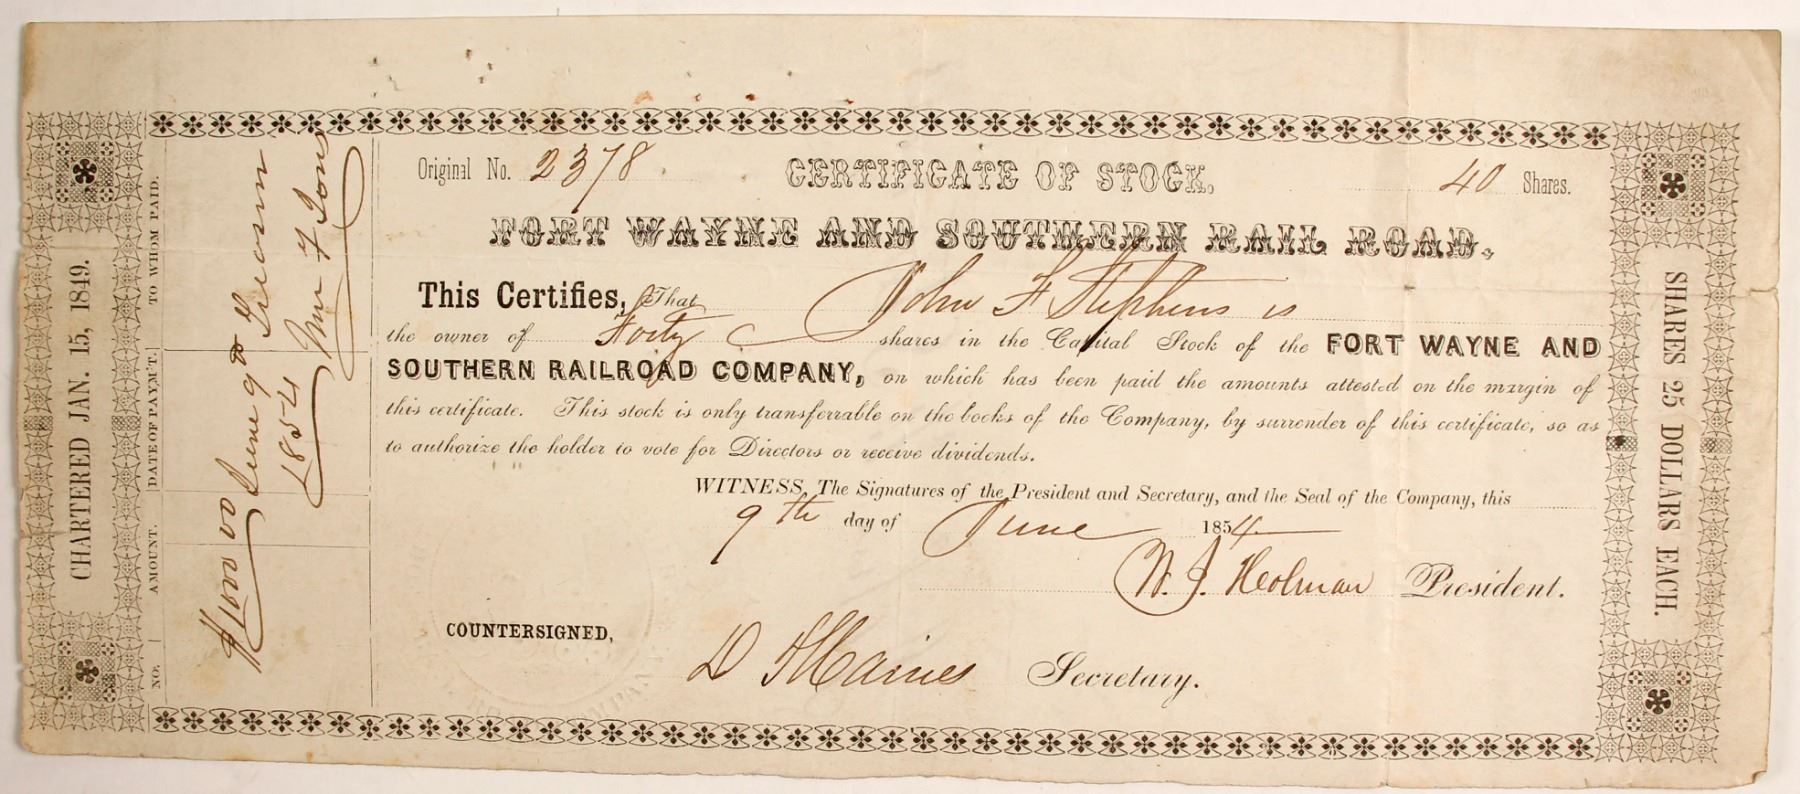 CHARTERED JAN. 15, 1849.
NO. AMOUNT. DATE OF PAYM'T. TO WHOM PAID.
$1000 00 June 9th
1854
Wm F Jons
Original No. 2378 CERTIFICATE OF STOCK. 40 Shares.
FORT WAYNE AND SOUTHERN RAIL ROAD.
This Certifies, That John F Stephens is
the owner of Forty shares in the Capital Stock of the FORT WAYNE AND
SOUTHERN RAILROAD COMPANY, on which has been paid the amounts attested on the margin of
this certificate. This stock is only transferrable on the books of the Company, by surrender of this certificate, so as
to authorize the holder to vote for Directors or receive dividends.
WITNESS, The Signatures of the President and Secretary, and the Seal of the Company, this
9th day of June 1854
W. J. Holman President.
COUNTERSIGNED,
D Haines Secretary.
SHARES 25 DOLLARS EACH.